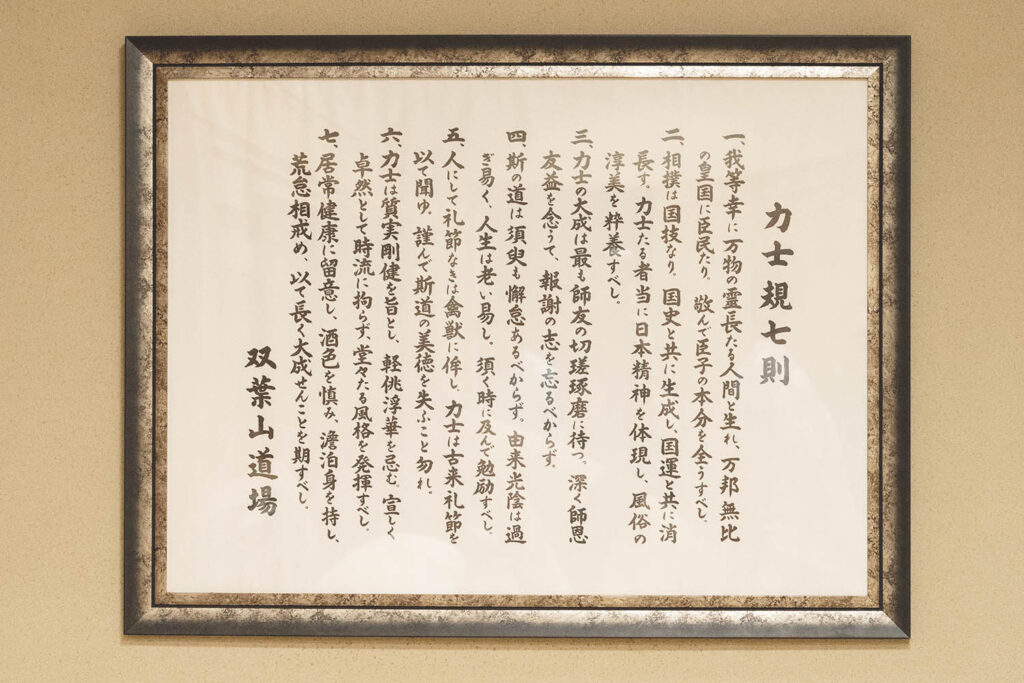 力士規七則
一、我等幸に万物の霊長たる人間と生れ、万邦無比
の皇国に臣民たり。敬んで臣子の本分を全うすべし。
二、相撲は国技なり。国史と共に生成し、国運と共に消
長す。力士たる者当に日本精神を体現し、風俗の
淳美を粋養すべし。
三、力士の大成は最も師友の切瑳琢磨に待つ。深く師恩
友益を念うて、報謝の志を忘るべからず。
四、斯の道は須臾も懈怠あるべからず。由来光陰は過
ぎ易く、人生は老い易し。須く時に及んで勉励すべし。
五、人にして礼節なきは禽獣に侔し。力士は古来礼節を
以て聞ゆ。謹んで斯道の美徳を失ふこと勿れ。
六、力士は質実剛健を旨とし、軽佻浮華を忌む。宜しく
卓然として時流に拘らず、堂々たる風格を発揮すべし。
七、居常健康に留意し、酒色を慎み、澹泊身を持し、
荒怠相戒め、以て長く大成せんことを期すべし。
双葉山道場